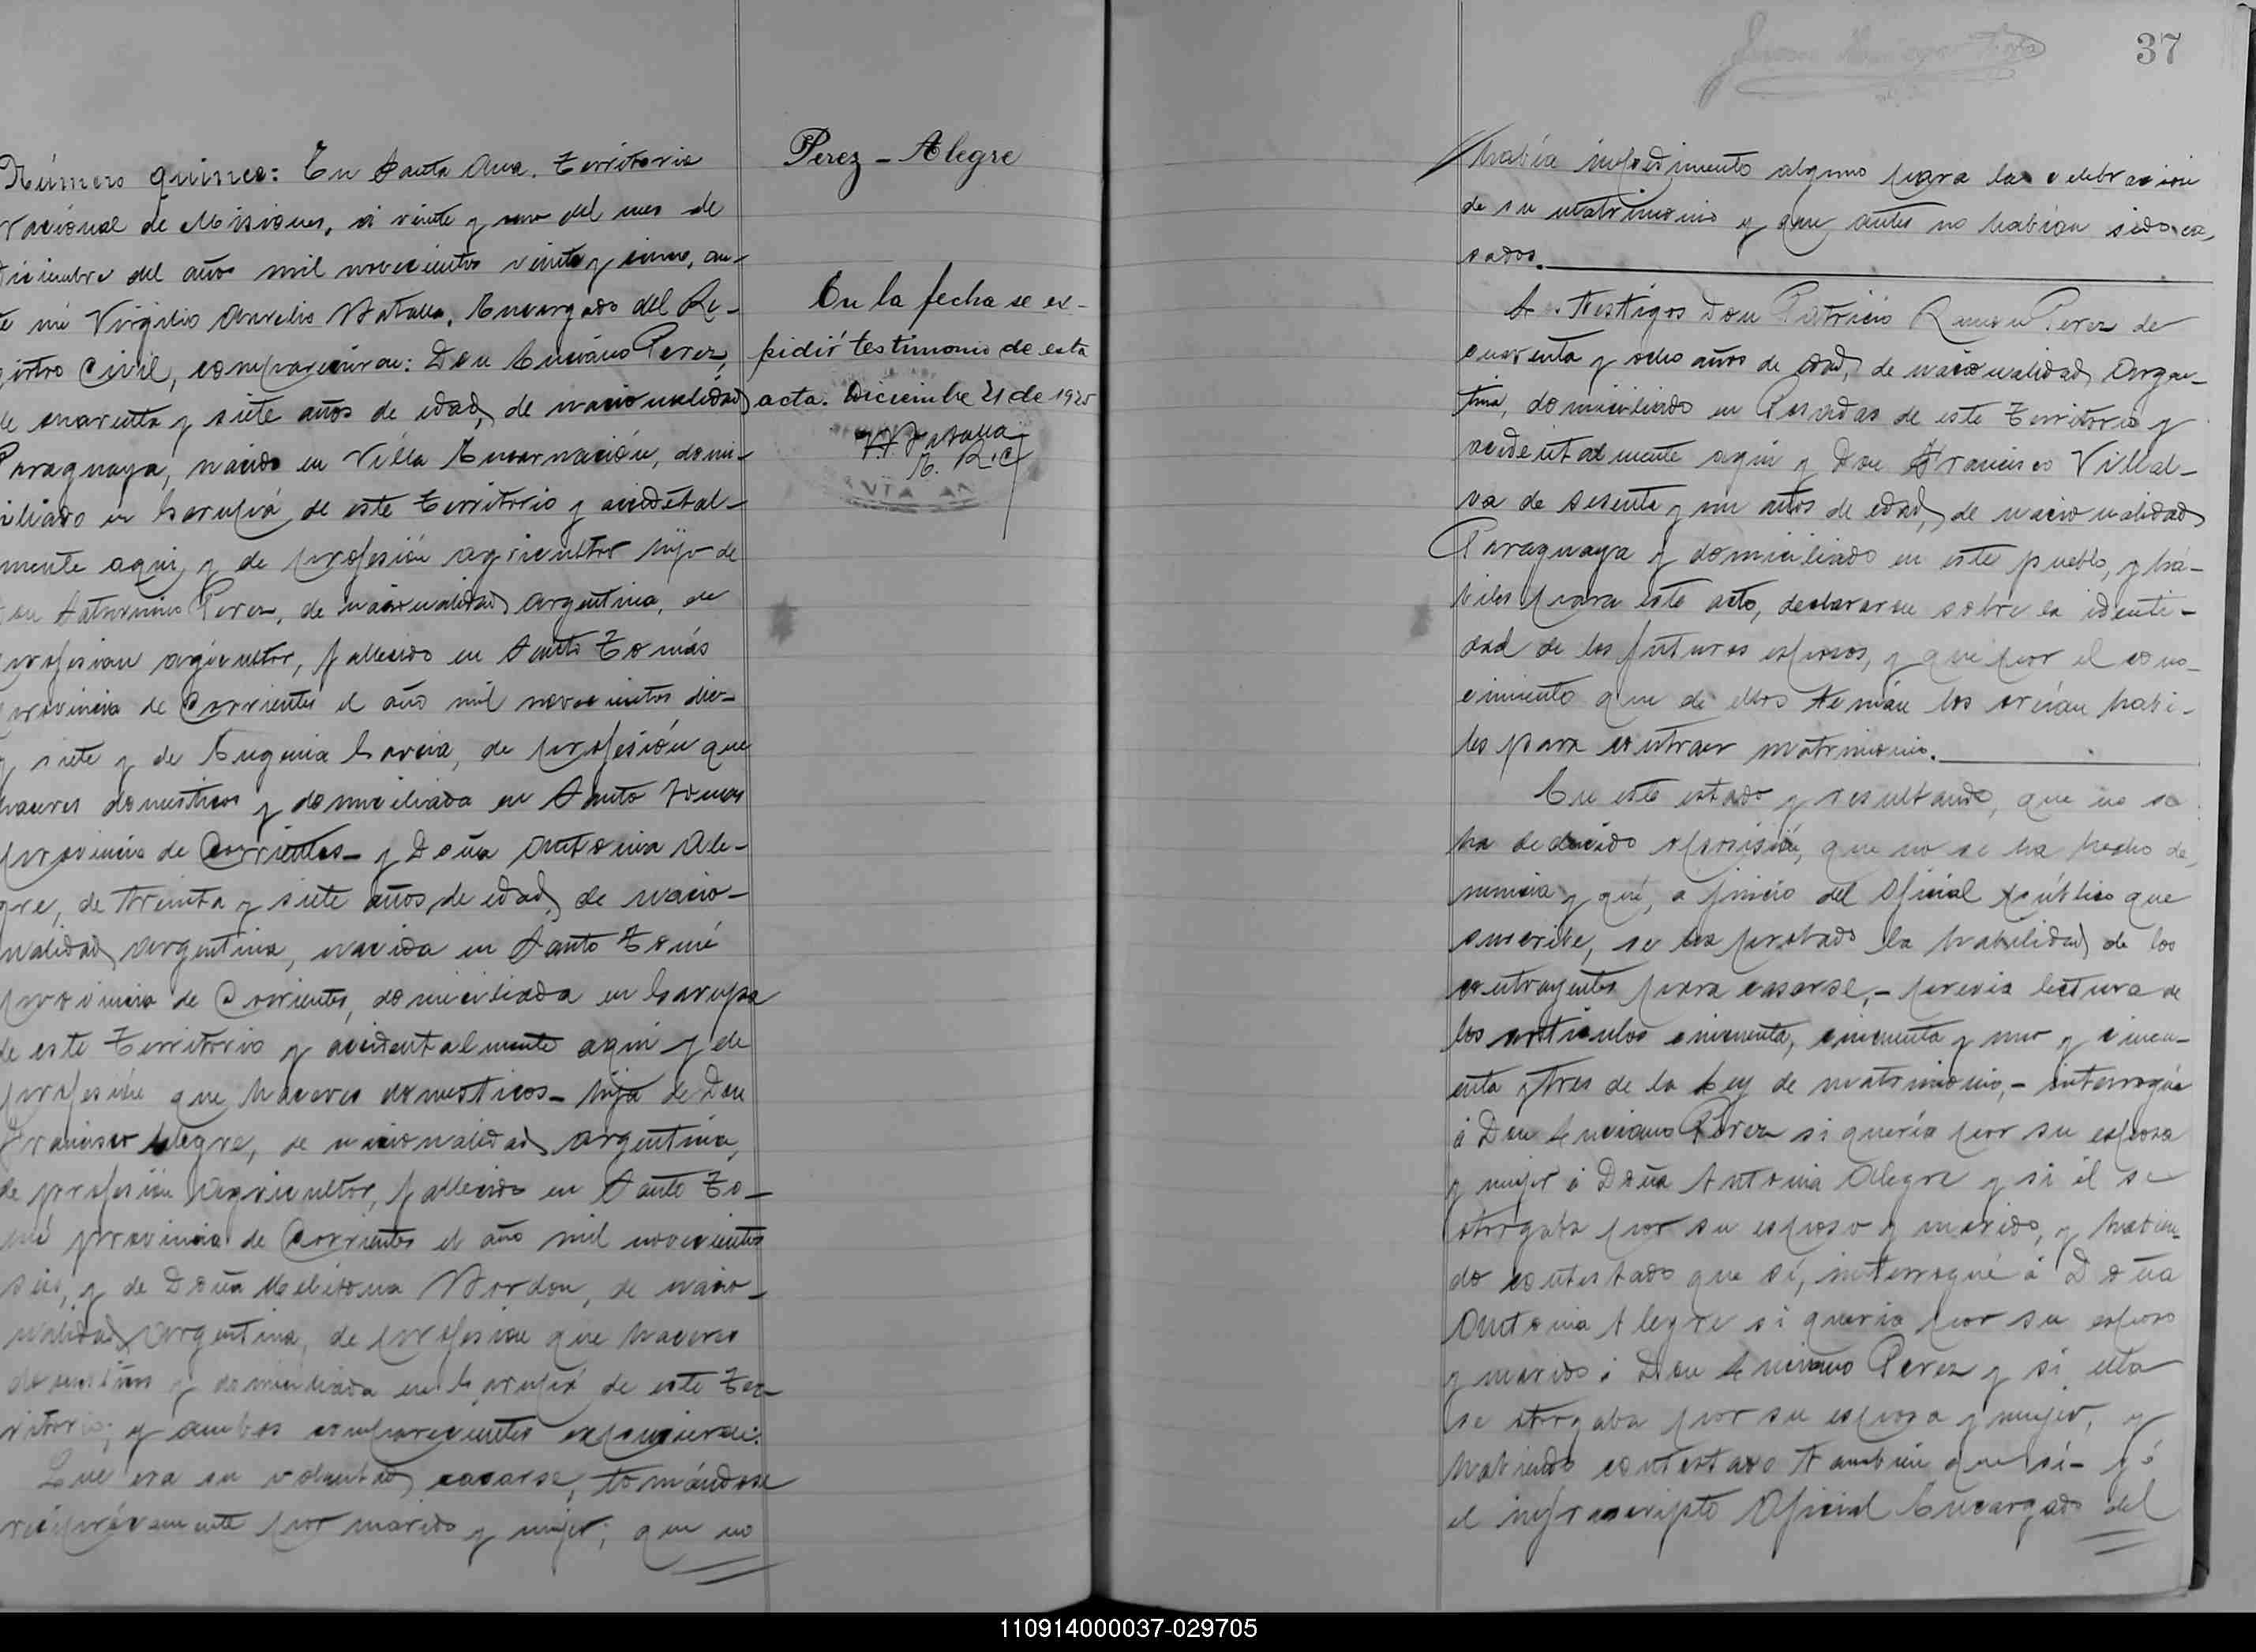 Número quince: En Santa Ana. Territorio
Nacional de Misiones, á veinte y uno del mes de
Diciembre del año mil novecientos veinte y cinco, an-
te mí Virgilio Aurelio Batalla. Encargado del Re-
gistro Civil, comparecieron: Don Luciano Perez,
de cuarenta y siete años de edad, de nacionalidad
Paraguaya, nacido en Villa Encarnación, domi-
ciliado en Garupá, de este Territorio y accidetal-
mente aqui, y de profesión agricultor hijo de
Don Saturnino Perez, de nacionalidad Argentina, de
profesion agricultor, fallecido en Santo Tomás
provincia de Corrientes el año mil novecientos diez
y siete y de Eugenia Garcia, de profesión que
haceres domesticos y domiciliada en Santo Tomas
provincia de Corrientes_ y Doña Antonia Ale-
gre, de treinta y siete años, de edad, de nacio-
nalidad Argentina, nacida en Santo Tomé
provincia de Corrientes, domiciliada en Garupa
de este Territorio y accidentalmente aqui y de
profesión que haceres domesticos_ hija de Don
Francisco Alegre, de nacionalidad Argentina,
de profesión Agricultor, fallecido en Santo To-
mé provincia de Corrientes el año mil novecientos
seis, y de Doña Melitona, de nacio-
nalidad Argentina, de profesion que haceres
domesticos y domiciliada en Garupá de este Ter-
ritorio; y ambos comparecientes expusieron:
Que era su voluntad casarse, tomándose
reciprócamente por marido y mujer; que no
Perez - Alegre
En la fecha se ex-
pidió testimonio de esta
acta. Diciembre 21 de 1925
V. A. Batalla
E. R. C.
37
había impedimento alguno para la celebracion
de su matrimonio y que antes no habian sido ca,
sados.
Los testigos Don Patricio Ramon Perez de
cuarenta y ocho años de edad, de nacionalidad Argen-
tina, domiciliado en Posadas de este Territorio y
accidentalmente aqui y Don Francisco Villal-
va de sesenta y un años de edad, de nacionalidad
Paraguaya y domiciliado en este pueblo, y há-
biles para este acto, declararon sobre la identi-
dad de los futuros esposos, y que por el cono-
cimiento que de ellos tenian los creian habi-
les para contraer matrimonio.
En este estado y resultando, que no se
ha deducido oposisión, que no se ha hecho de,
nuncia y qué, a juicio del Oficial público que
suscribe, se ha probado la habilidad de los
contrayentes para casarse,- previa lectura de
los articulos cincuenta, cincuenta y uno y cincu-
enta y tres de la Ley de matrimonio,- interrogúe
á Don Luciano Perez si quería por su esposa
y mujer á Doña Antonia Alegre y si él se
otorgaba por su esposo y marido, y habien-
do contestado que sí, interrogué á Doña
Antonia Alegre si queria por su esposo
y marido á Don Luciano Perez y si ella
se otorgaba por su esposa y mujer, y
habiendo contestado tambien que sí- yó
el infrascripto Oficial Encargado del
110914000037-029705